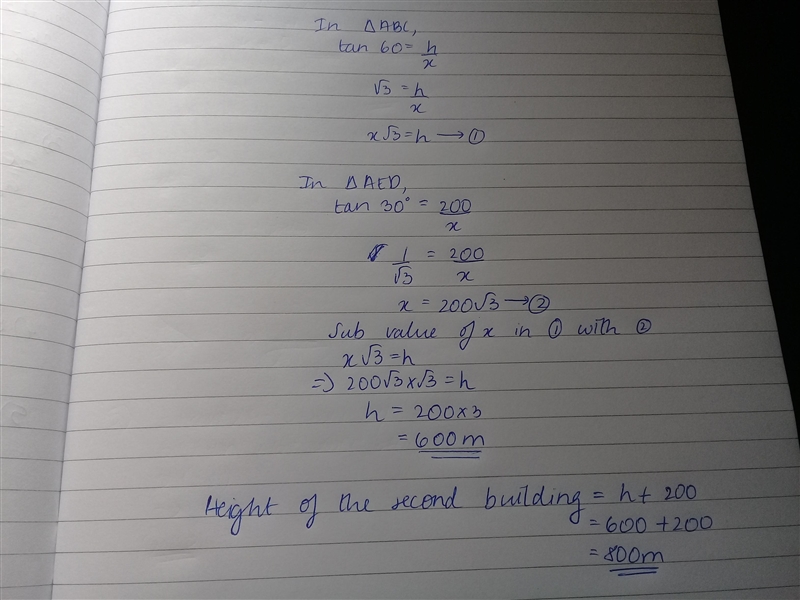 In △ABC,
tan 60 = h/x
√3 = h/x
x√3 = h → ①
In △AED,
tan 30° = 200/x
1/√3 = 200/x
x = 200√3 → ②
Sub value of x in ① with ②
x√3 = h
=> 200√3 × √3 = h
h = 200 × 3
= 600 m
Height of the second building = h + 200
= 600 + 200
= 800m